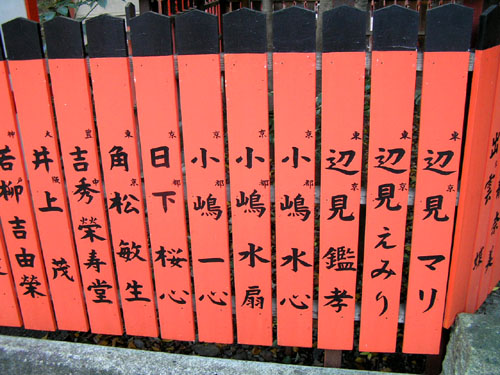 東京 辺見 マリ
東京 辺見 えみり
東京 辺見 鑑孝
京都 小嶋 水心
京都 小嶋 水扇
京都 小嶋 一心
京都 日下 桜心
東京 角松 敏生
吉秀 榮寿堂
大阪 井上 茂
若柳 吉由榮